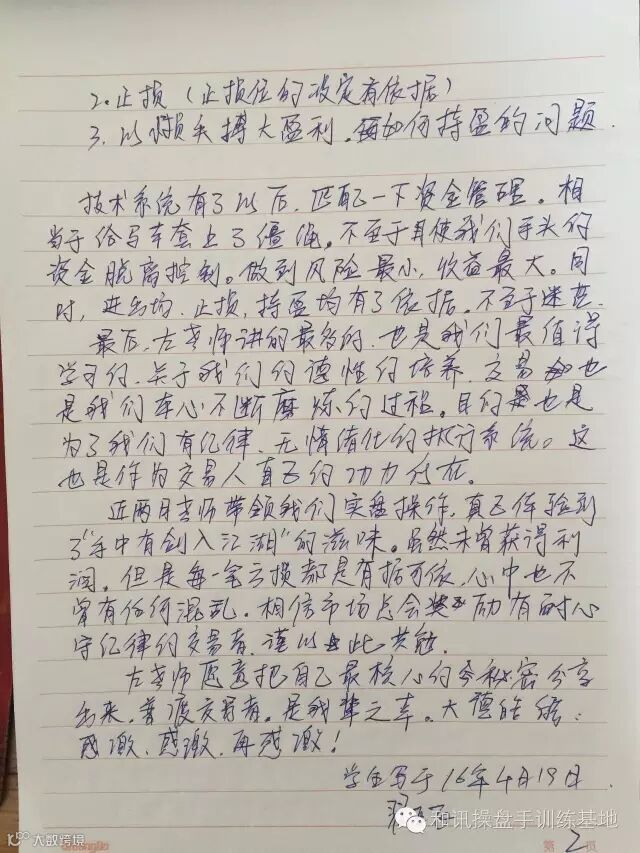 2. 止损（止损位的设定有依据）
3. 以小损失搏大盈利。如何持盈的问题.
技术系统有了以后，匹配一下资金管理。相
当于给马车套上了缰绳。不至于再使我们手头的
资金脱离控制。做到风险最小，收益最大。同
时，进出场，止损，持盈均有了依据，不至于迷茫.
最后，左老师讲的最多的，也是我们最值得
学习的，关于我们的德性的培养，交易也
是我们在心不断磨炼的过程。目的也是
为了我们有纪律，无情绪化的执行系统。这
也是作为交易人真正的功力所在。
近两月老师带领我们实盘操作，真正体验到
了“手中有剑入江湖”的滋味。虽然未曾获得利
润。但是每一笔亏损都是有据可依，心中也不
曾有任何混乱。相信市场总会奖励有耐心
守纪律的交易者，谨以此共勉.
左老师愿意把自己最核心的秘密分享
出来，普渡交易者。是我辈之幸。大德
感激、感激、再感激！
学生写于16年4月19日.
和讯操盘手训练基地
大数跨境
第 2 页